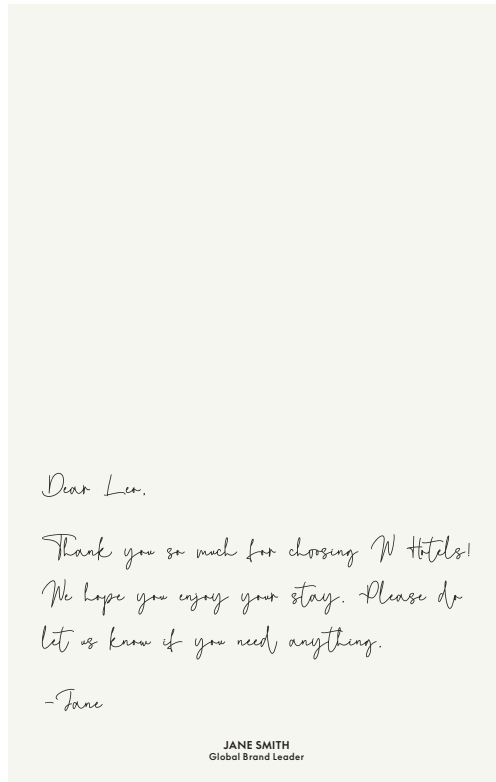 Dear Leo,
Thank you so much for choosing W Hotels!
We hope you enjoy your stay. Please do
let us know if you need anything.
-Jane
JANE SMITH
Global Brand Leader